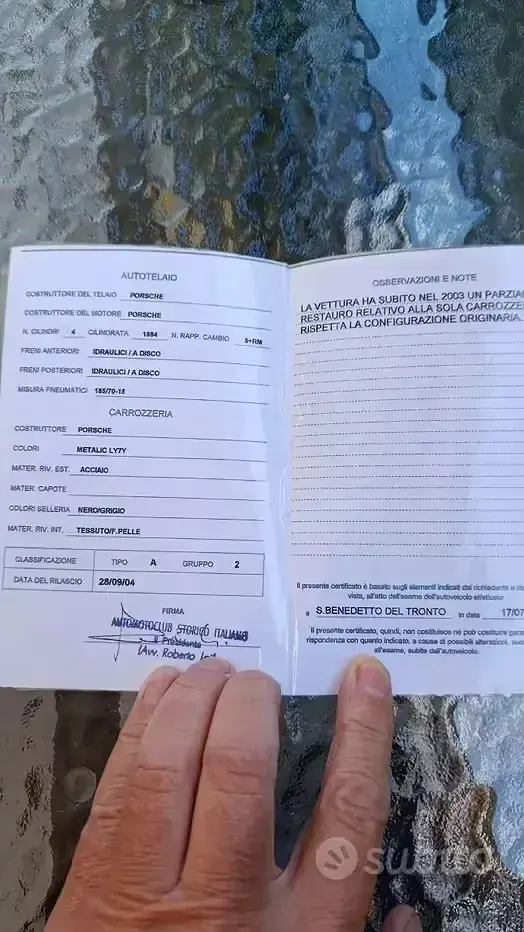 AUTOTELAIO
COSTRUTTORE DEL TELAIO PORSCHE
COSTRUTTORE DEL MOTORE PORSCHE
N. CILINDRI 4 CILINDRATA 1984 N. RAPP. CAMBIO 5+RM
FRENI ANTERIORI IDRAULICI / A DISCO
FRENI POSTERIORI IDRAULICI / A DISCO
MISURA PNEUMATICI 185/70-15
CARROZZERIA
COSTRUTTORE PORSCHE
COLORI METALIC LY7Y
MATER. RIV. EST. ACCIAIO
MATER. CAPOTE
COLORI SELLERIA NERO/GRIGIO
MATER. RIV. INT. TESSUTO/F.PELLE
CLASSIFICAZIONE TIPO A GRUPPO 2
DATA DEL RILASCIO 28/09/04
FIRMA
AUTOMOTOCLUB STORICO ITALIANO
Il Presidente
(Avv. Roberto
OSSERVAZIONI E NOTE
LA VETTURA HA SUBITO NEL 2003 UN PARZIA
RESTAURO RELATIVO ALLA SOLA CARROZZE
RISPETTA LA CONFIGURAZIONE ORIGINARIA.
Il presente certificato è basato sugli elementi indicati dal richiedente e
vista, all'atto dell'esame dell'autoveicolo effettuato
a S.BENEDETTO DEL TRONTO in data 17/07
Il presente certificato, quindi, non costituisce né può costituire gara
rispondenza con quanto indicato, a causa di possibili alterazioni, suc
all'esame, subite dall'autoveicolo.